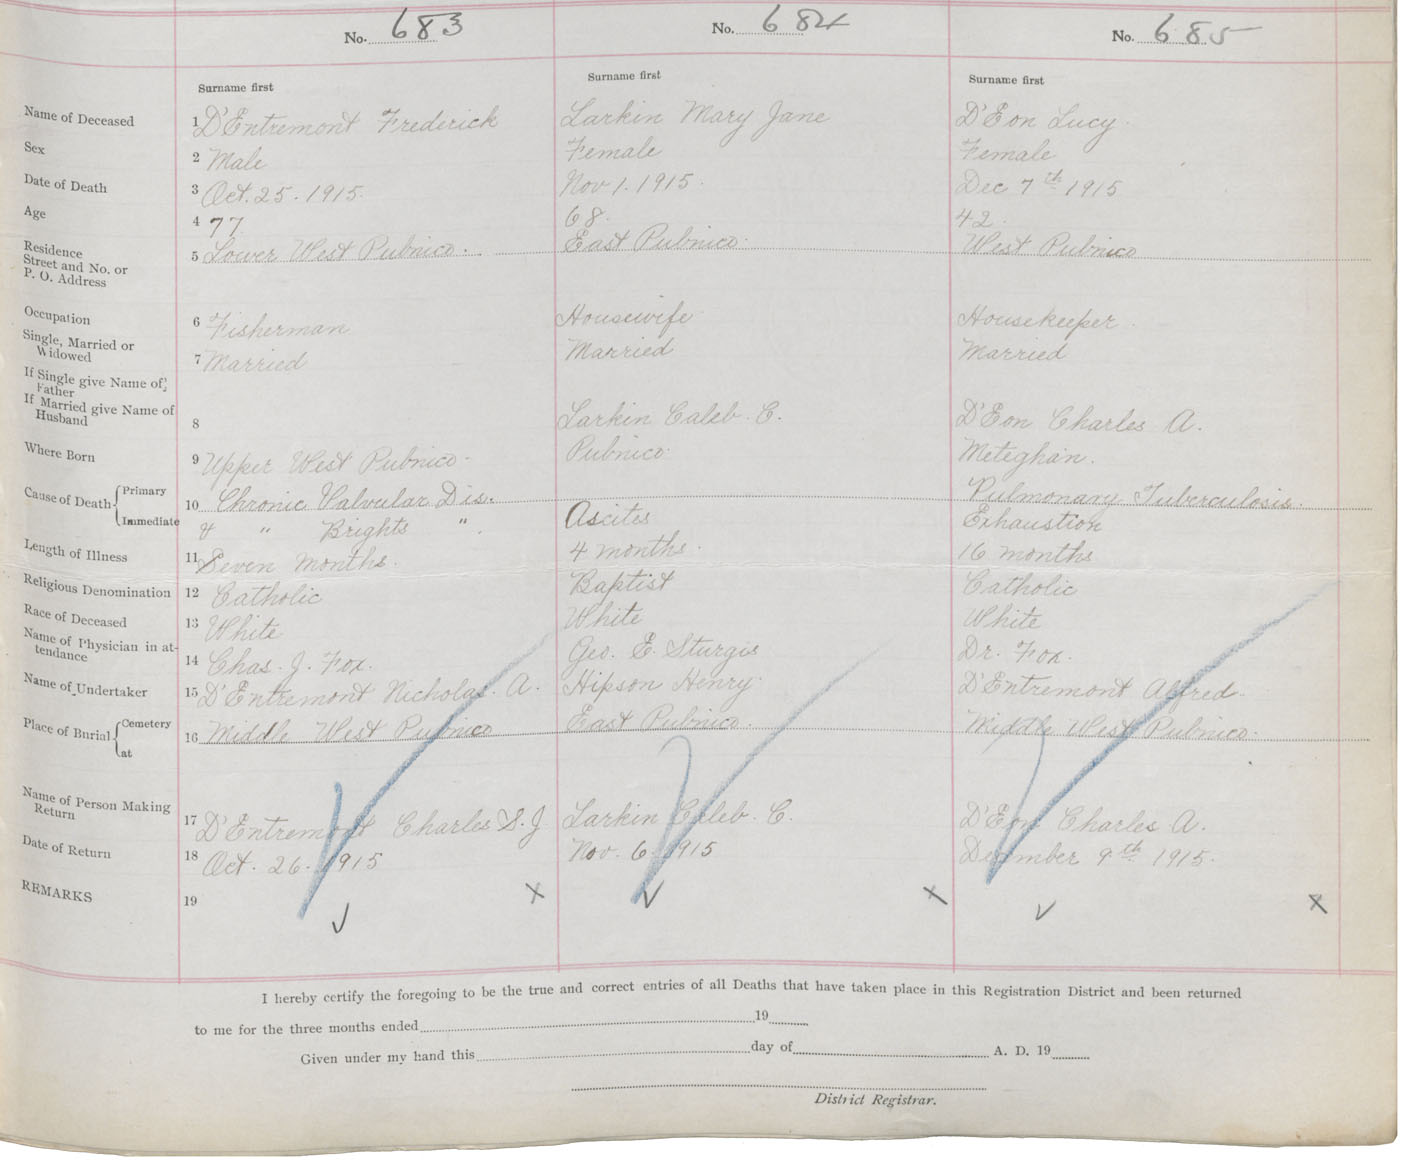 No. 683 No. 684 No. 685
Surname first Surname first Surname first
Name of Deceased 1 D'Entremont Frederick Larkin Mary Jane D'Eon Lucy.
Sex 2 Male Female Female
Date of Death 3 Oct. 25. 1915. Nov 1. 1915. Dec 7th 1915
Age 4 77 68. 42.
Residence
Street and No. or
P. O. Address 5 Lower West Pubnico. East Pubnico. West Pubnico
Occupation 6 Fisherman Housewife Housekeeper.
Single, Married or
Widowed 7 Married Married Married
If Single give Name of
Father
If Married give Name of
Husband 8 Larkin Caleb. C. D'Eon Charles A.
Where Born 9 Upper West Pubnico. Pubnico. Meteghan.
Cause of Death Primary 10 Chronic Valvular Dis. Pulmonary Tuberculosis.
Immediate & " Brights " . Ascites Exhaustion
Length of Illness 11 Seven months. 4 months. 16 months
Religious Denomination 12 Catholic Baptist Catholic
Race of Deceased 13 White White White
Name of Physician in at-
tendance 14 Chas. J. Fox. Geo. E. Sturgis Dr. Fox.
Name of Undertaker 15 D'Entremont Nicholas. A. Hipson Henry D'Entremont Alfred.
Place of Burial Cemetery
at 16 Middle West Pubnico East Pubnico. Middle West Pubnico.
Name of Person Making
Return 17 D'Entremont Charles S. J Larkin Caleb. C. D'Eon Charles A.
Date of Return 18 Oct. 26. 1915 Nov. 6. 1915 December 9th 1915.
REMARKS 19
I hereby certify the foregoing to be the true and correct entries of all Deaths that have taken place in this Registration District and been returned
to me for the three months ended 19
Given under my hand this day of A. D. 19
District Registrar.